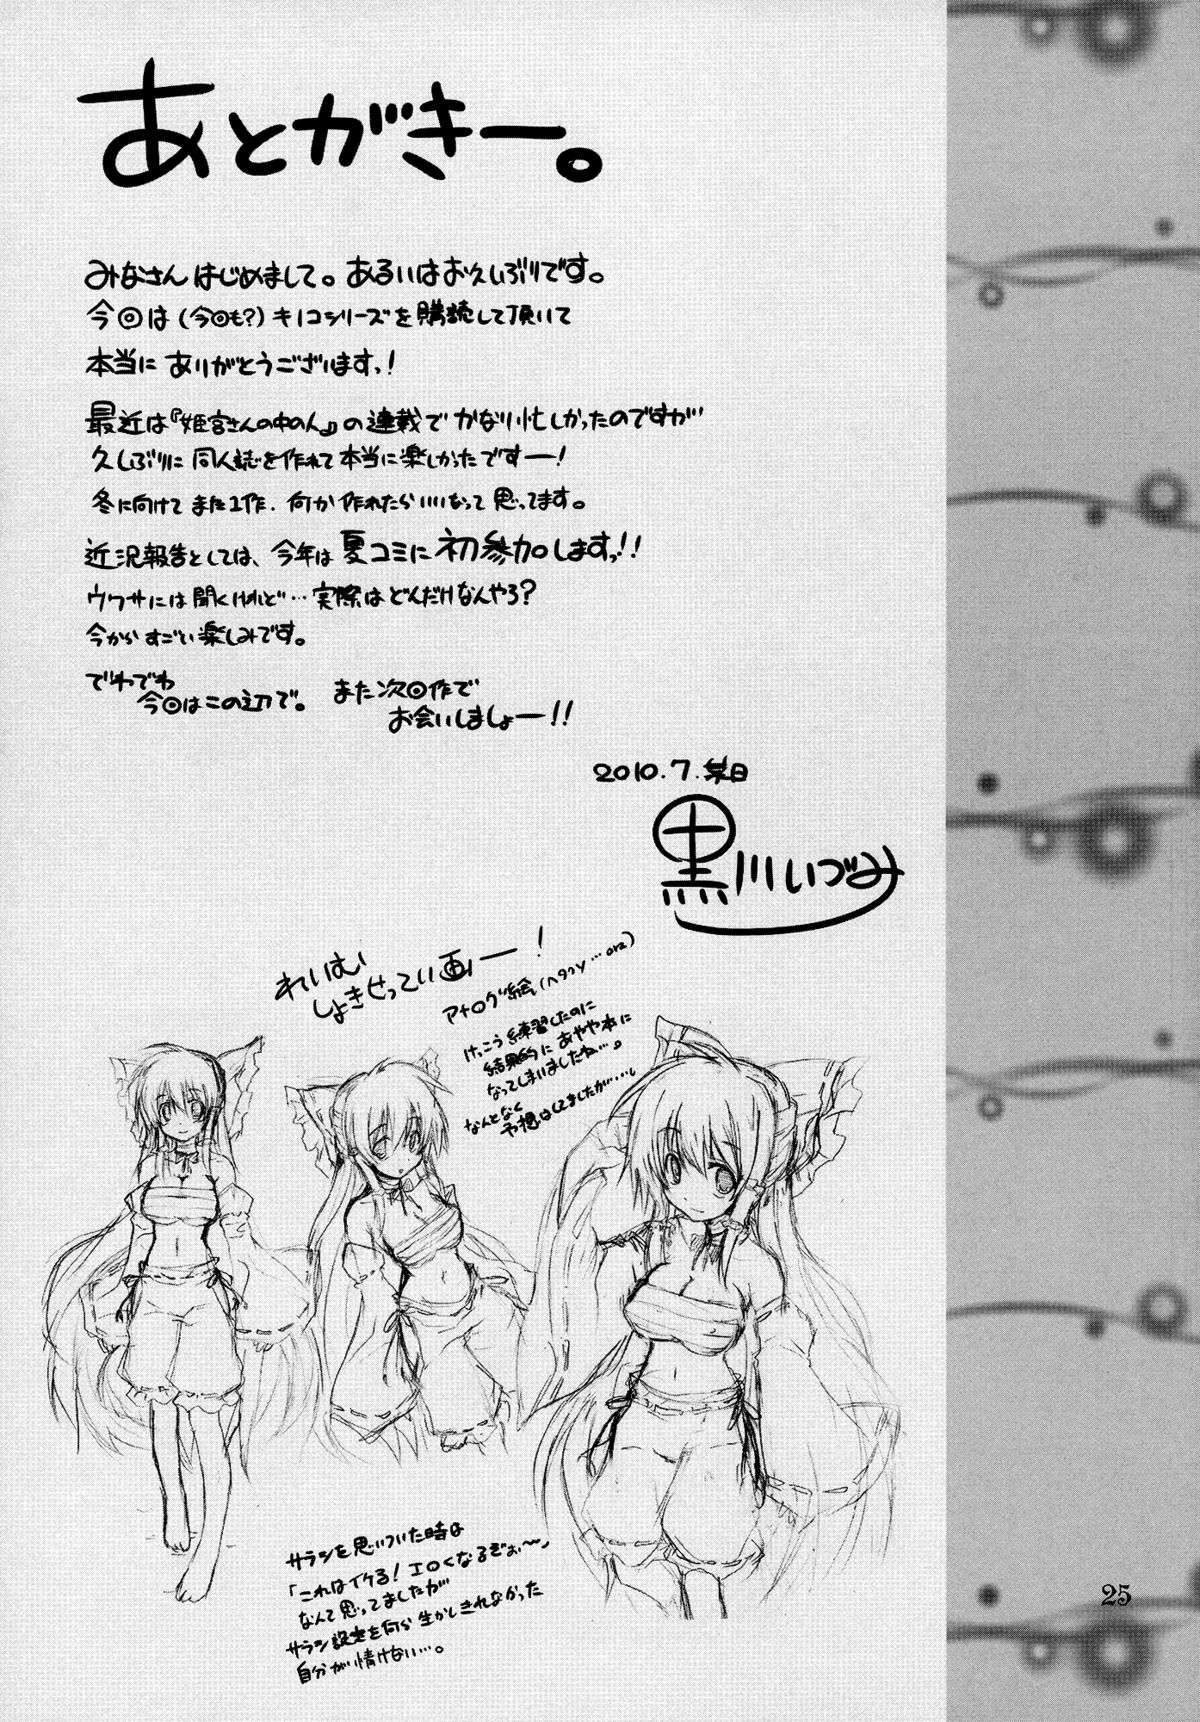 あとがきー。
みなさんはじめまして。あるいはお久しぶりです。
今回は(今回も?)キノコシリーズを購読して頂いて
本当にありがとうございますっ!
最近は『姫宮さんの中の人』の連載でかなり忙しかったのですが
久しぶりに同人誌を作れて本当に楽しかったですー!
冬に向けてまた1作、何か作れたらいいなって思ってます。
近況報告としては、今年は夏コミに初参加しますっ!!
ウワサには聞くけれど…実際はどんだけなんやろ?
今からすごい楽しみです。
でわでわ
今回はこの辺で。
また次回作で
お会いしましょー!!
2010.7.某日
黒川いづみ
れいむい
しょきせってい画ー!
アナログ絵(ヘタクソ…orz)
けっこう練習したのに
結果的にあやや本に
なってしまいましたね…。
なんとなく
予想はしてましたが…
サラシを思いついた時は
「これはイケる!エロくなるぞぉ〜」
なんて思ってましたが
サラシ設定を何ら生かしきれなかった
自分が情けない…。
25